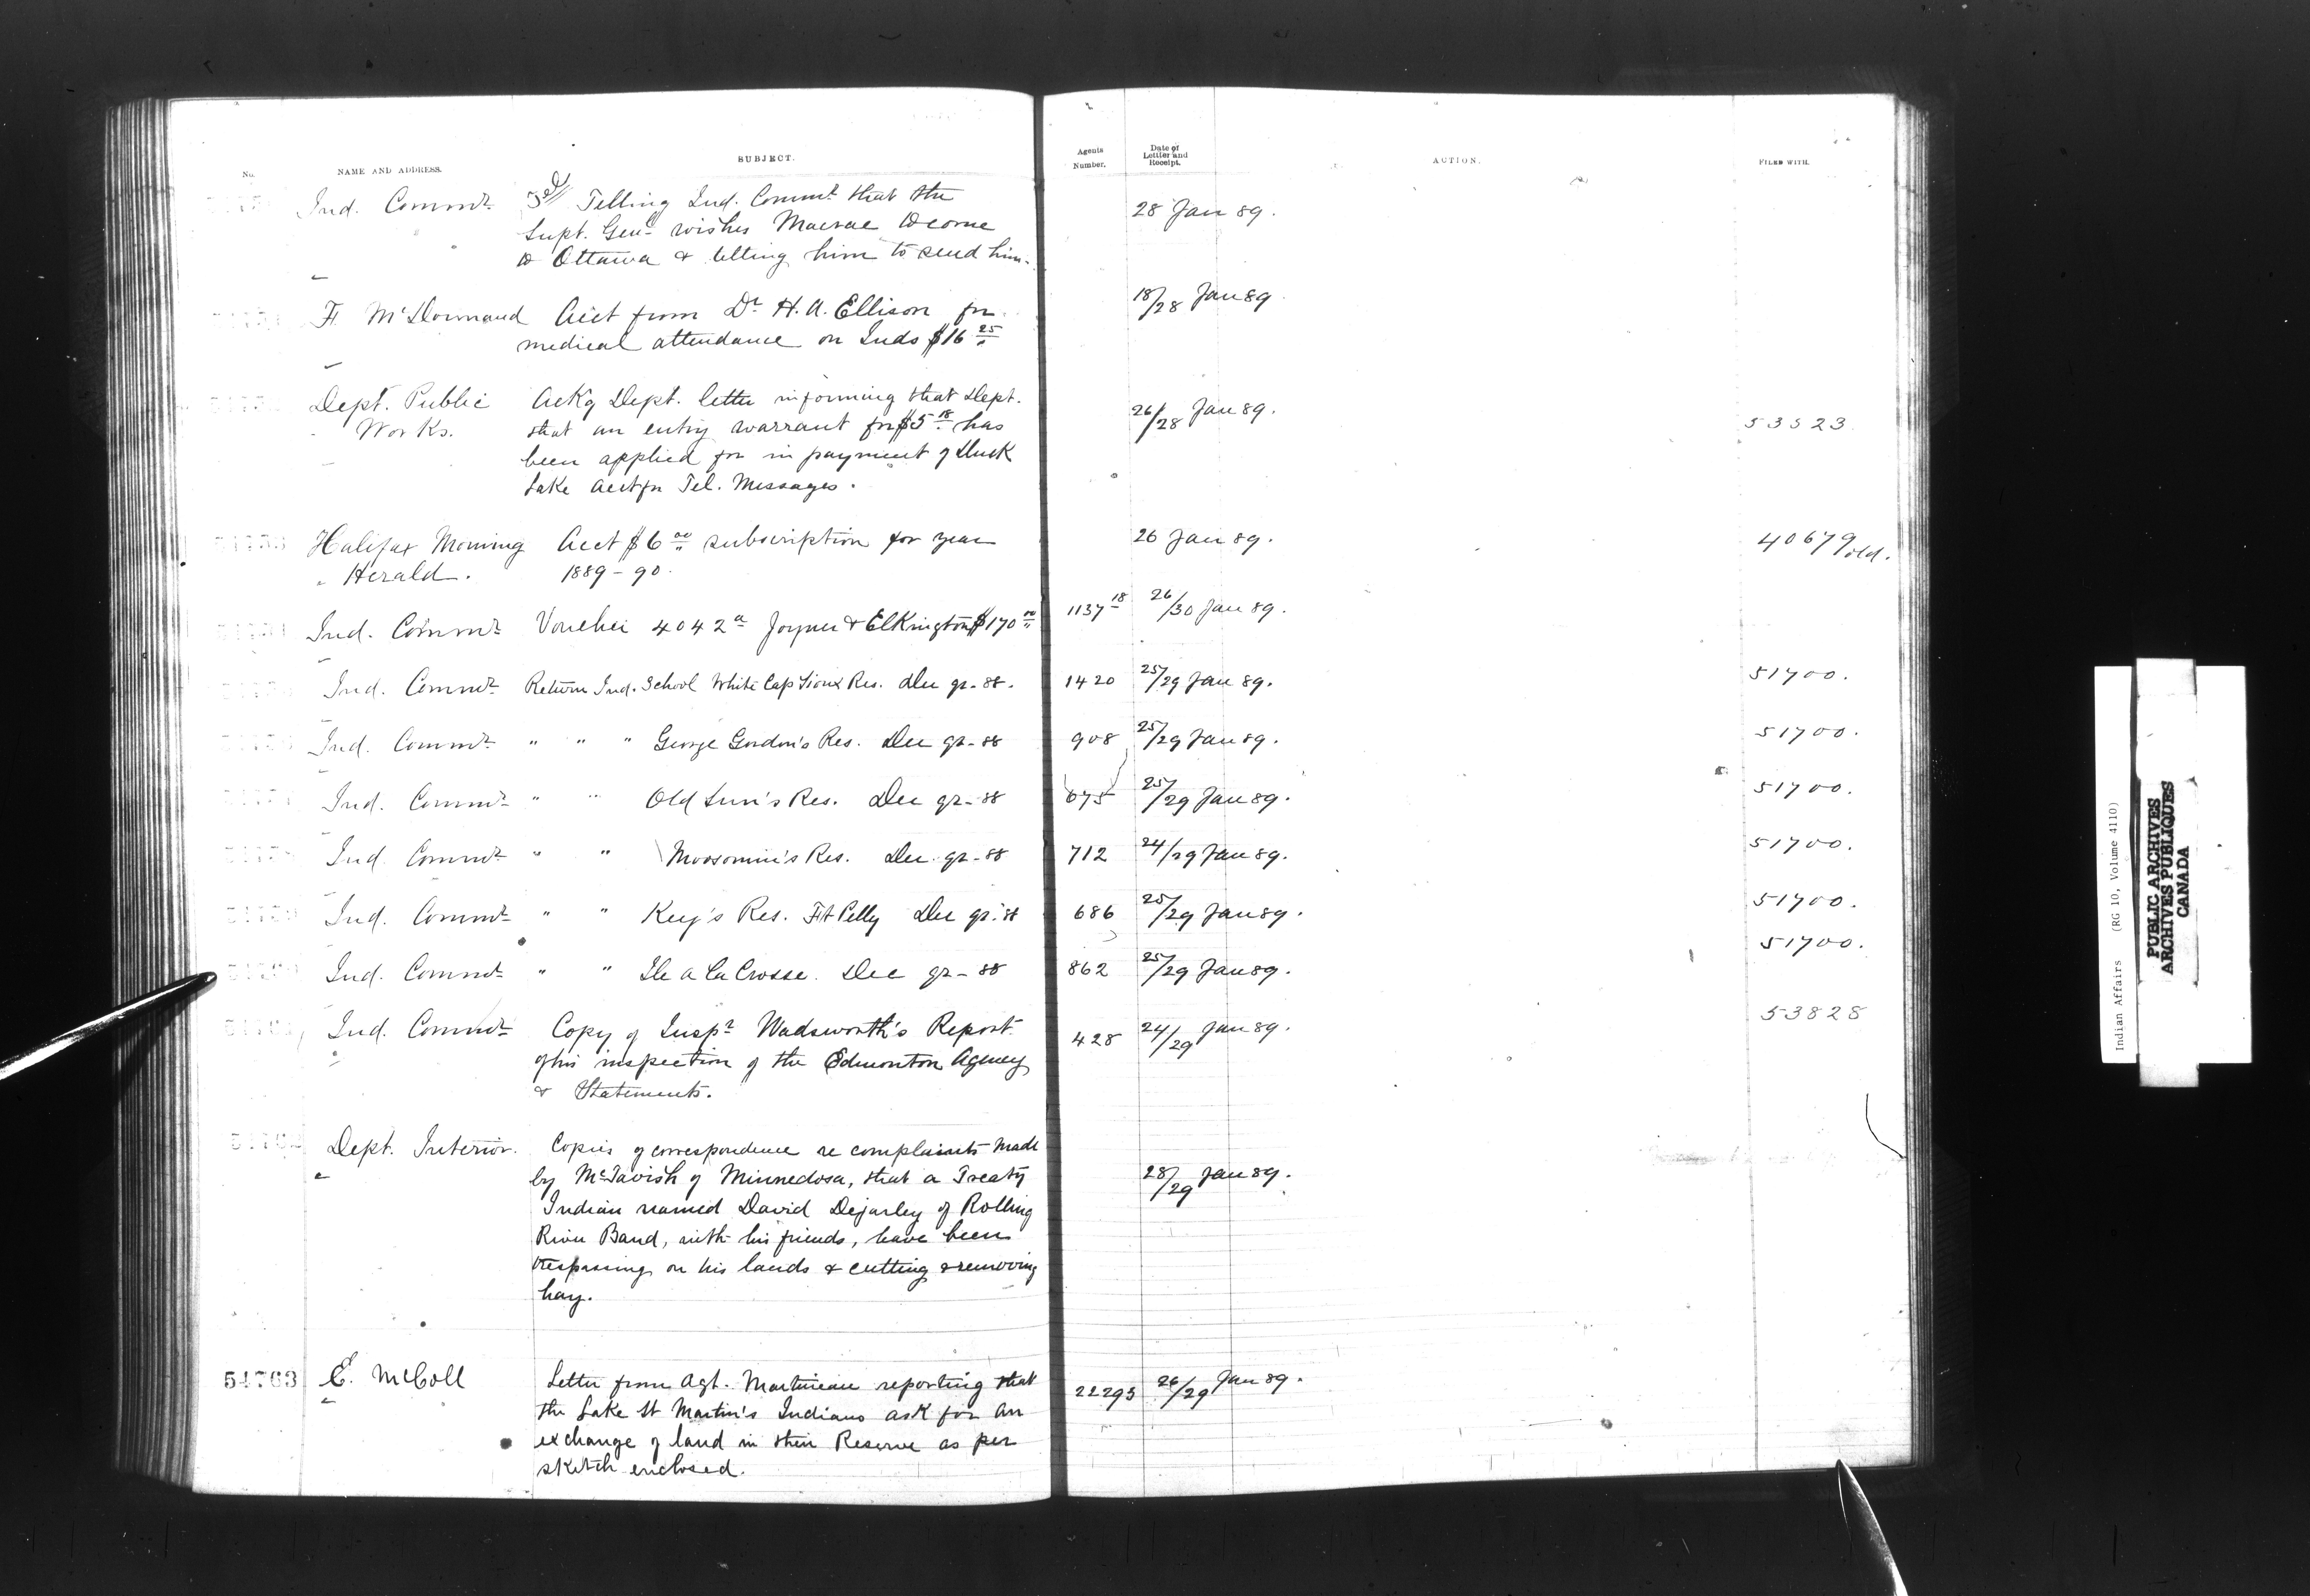 No. NAME AND ADDRESS. SUBJECT. Agents Number. Date of Letter and Receipt. ACTION. FILED WITH.
Ind. Commr Telling Ind. Commr that the 28 Jan 89.
Supt. Genl wishes Macrae to come
to Ottawa & telling him to send him.
F. McDormand Acct from Dr H. A. Ellison for 18/28 Jan 89
medical attendance on Inds $16 25
Dept. Public Ackg Dept. letter informing that Dept. 26/28 Jan 89.
Works. that an entry warrant for $5 18 has 53523
been applied for in payment of Duck
Lake Acct for Tel. Messages.
Halifax Morning Acct $6 00 subscription for year 26 Jan 89. 40679 old.
Herald. 1889-90.
Ind. Commr Voucher 4042 a Joyner & Elkington $170 00 1137 18 26/30 Jan 89.
Ind. Commr Return Ind. School White Cap Sioux Res. Dec qr-88. 1420 25/29 Jan 89. 51700.
Ind. Commr " " " George Gordon's Res. Dec qr-88 908 25/29 Jan 89. 51700.
Ind. Commr " " Old Sun's Res. Dec qr-88 675 25/29 Jan 89. 51700.
Ind. Commr " " Moosomin's Res. Dec. qr-88 712 24/29 Jan 89. 51700.
Ind. Commr " " Key's Res. Ft Pelly Dec qr-88 686 25/29 Jan 89. 51700.
Ind. Commr " " Ile a La Crosse. Dec qr-88 862 25/29 Jan 89. 51700.
Ind. Commr Copy of Inspr Wadsworth's Report 428 24/29 Jan 89. 53828
of his inspection of the Edmonton Agency
& Statements.
Dept. Interior. Copies of correspondence re complaints made
by McTavish of Minnedosa, that a Treaty 28/29 Jan 89.
Indian named David Dejarley of Rolling
River Band, with his friends, have been
trespassing on his lands & cutting & removing
hay.
54763 E. McColl Letter from Agt. Martineau reporting that 22293 26/29 Jan 89.
the Lake St Martin's Indians ask for an
exchange of land in their Reserve as per
sketch enclosed.
Indian Affairs (RG 10, Volume 4110)
PUBLIC ARCHIVES
ARCHIVES PUBLIQUES
CANADA